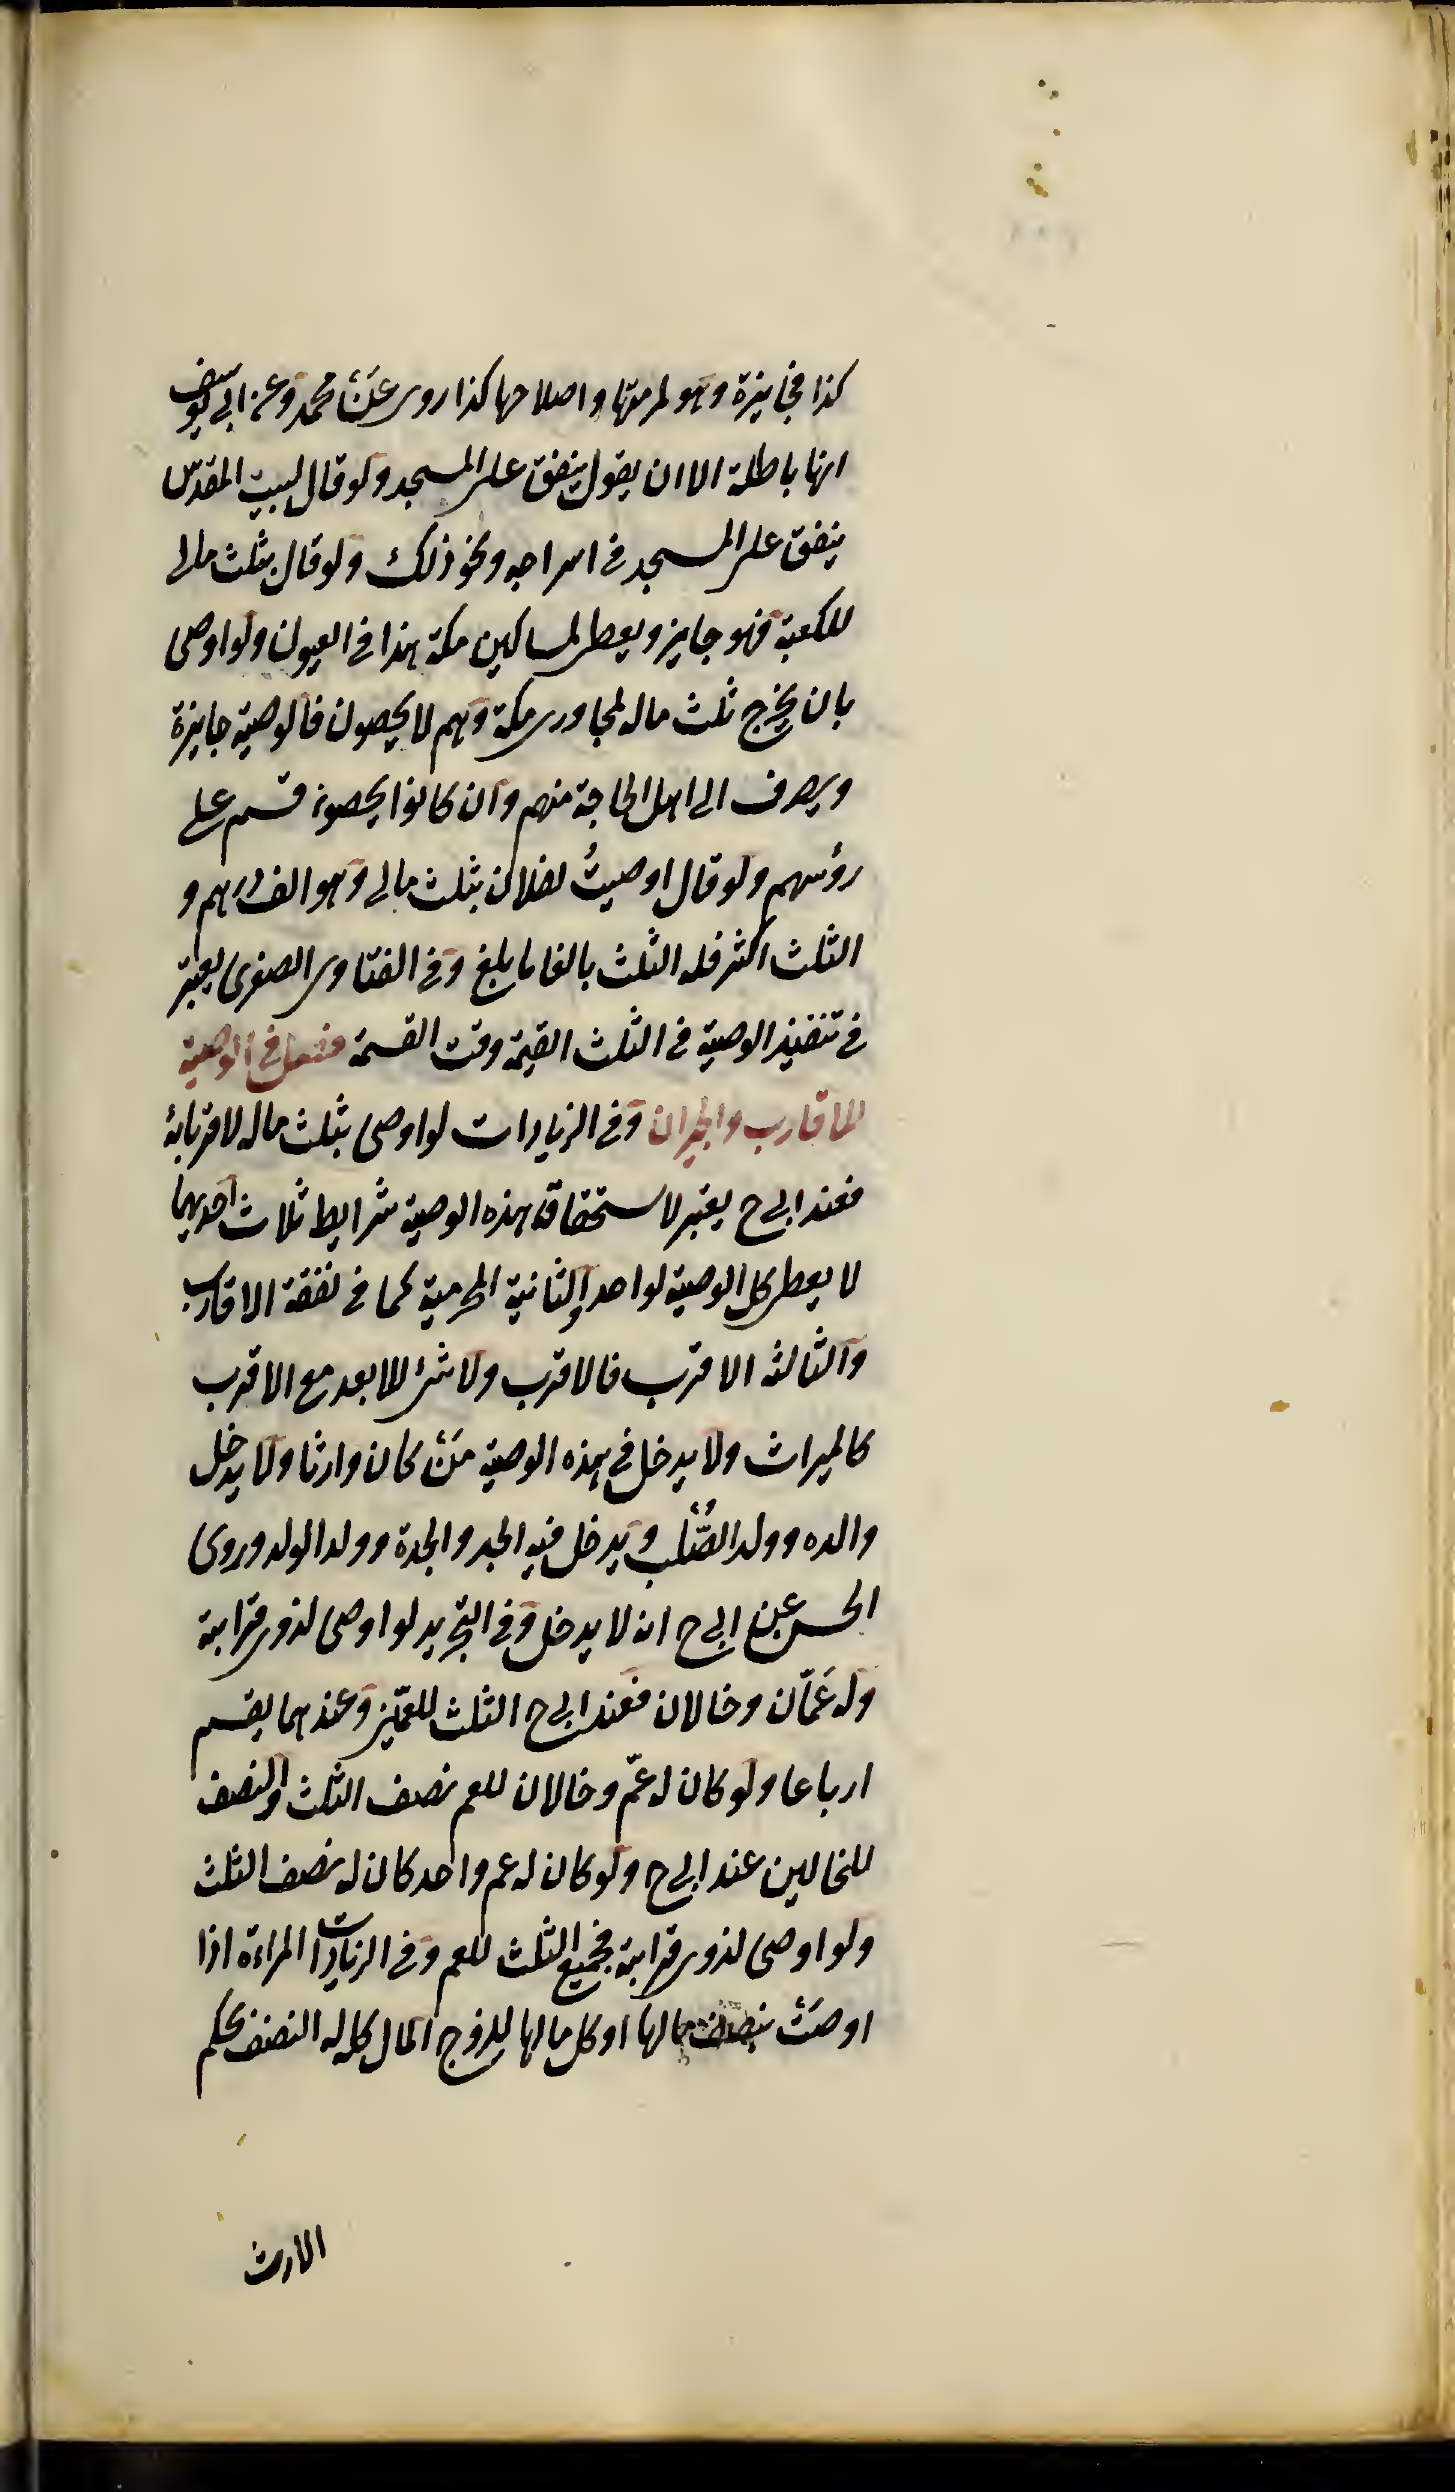 كذا فجايزة وهو لمرمتها واصلاحها كذا روى عن محمد وعن ابى يوسف
انها باطلة الا ان يقول ينفق على المسجد ولو قال لبيت المقدس
ينفق على المسجد فى اسراجه ونحو ذلك ولو قال بثلث مالى
للكعبة فهو جايز ويعطى لمساكين مكة هذا فى العيون ولو اوصى
بان يخرج ثلث ماله لمجاورى مكة وهم لا يحصون فالوصية جايزة
ويصرف الى اهل الحاجة منهم وان كانوا يحصون قسم على
رؤسهم ولو قال اوصيتُ لفلان بثلث مالى وهو الف درهم و
الثلث اكثر فله الثلث بالغا ما بلغ وفى الفتاوى الصغرى يعتبر
فى تنفيذ الوصية فى الثلث القيمة وقت القسمة فصل فى الوصية
للاقارب والجيران وفى الزيادات لو اوصى بثلث ماله لاقربائه
فعند ابى ح يعتبر لاستحقاق هذه الوصية شرايط ثلاث احديهما
لا يعطى كل الوصية لواحد والثانية المحرمية كما فى نفقة الاقارب
والثالثه الاقرب فالاقرب ولا شئ للابعد مع الاقرب
كالميراث ولا يدخل فى هذه الوصية مَنْ كان وارثا ولا يدخل
والده وولد الصُّلْب ويدخل فيه الجد والجدة وولد الولد وروى
الحسن عن ابى ح انه لا يدخل وفى التجريد لو اوصى لذوى قرابة
وله عَمّان وخالان فعند ابى ح الثلث للعمّين وعندهما يقسم
ارباعا ولو كان له عمّ وخالان للعم نصف الثلث والنصف
للخالين عند ابى ح ولو كان له عم واحد كان له نصف الثلث
ولو اوصى لذوى قرابة فجميع الثلث للعم وفى الزيادات المراءة اذا
اوصَتْ بنصف مالها او كل مالها للزوج المال كله له النصف بحكم
الارث